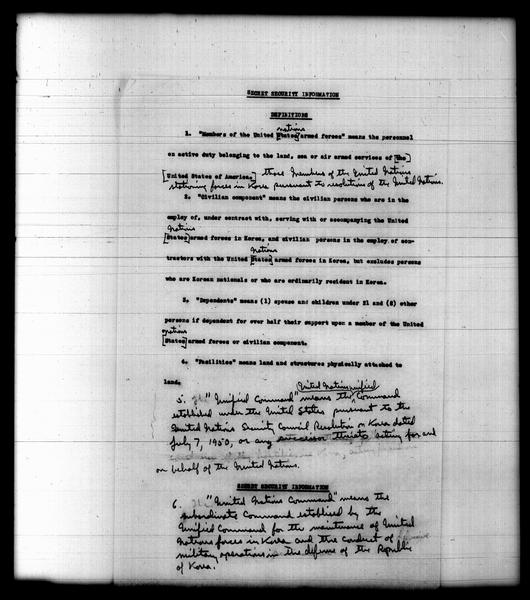 SECRET SECURITY INFORMATION
DEFINITIONS
nations
1. "Members of the United [States] armed forces" means the personnel
on active duty belonging to the land, sea or air armed services of [the
United States of America.] those members of the United Nations
stationing forces in Korea pursuant to resolutions of the United Nations.
2. "Civilian component" means the civilian persons who are in the
employ of, under contract with, serving with or accompanying the United
Nations
[States] armed forces in Korea, and civilian persons in the employ of con-
Nations
tractors with the United [States] armed forces in Korea, but excludes persons
who are Korean nationals or who are ordinarily resident in Korea.
3. "Dependents" means (1) spouse and children under 21 and (2) other
persons if dependent for over half their support upon a member of the United
nations
[States] armed forces or civilian component.
4. "Facilities" means land and structures physically attached to
land.
United Nations unified
5. "Unified Command" means the Command
established under the United States pursuant to the
United Nations Security Council Resolution on Korea dated
July 7, 1950, or any successor thereto acting for and
on behalf of the United Nations.
SECRET SECURITY INFORMATION
6. "United Nations Command" means the
subordinate Command establised by the
Unified Command for the maintenance of United
Nations forces in Korea and the conduct of
military operations in the defense of the Republic
of Korea.